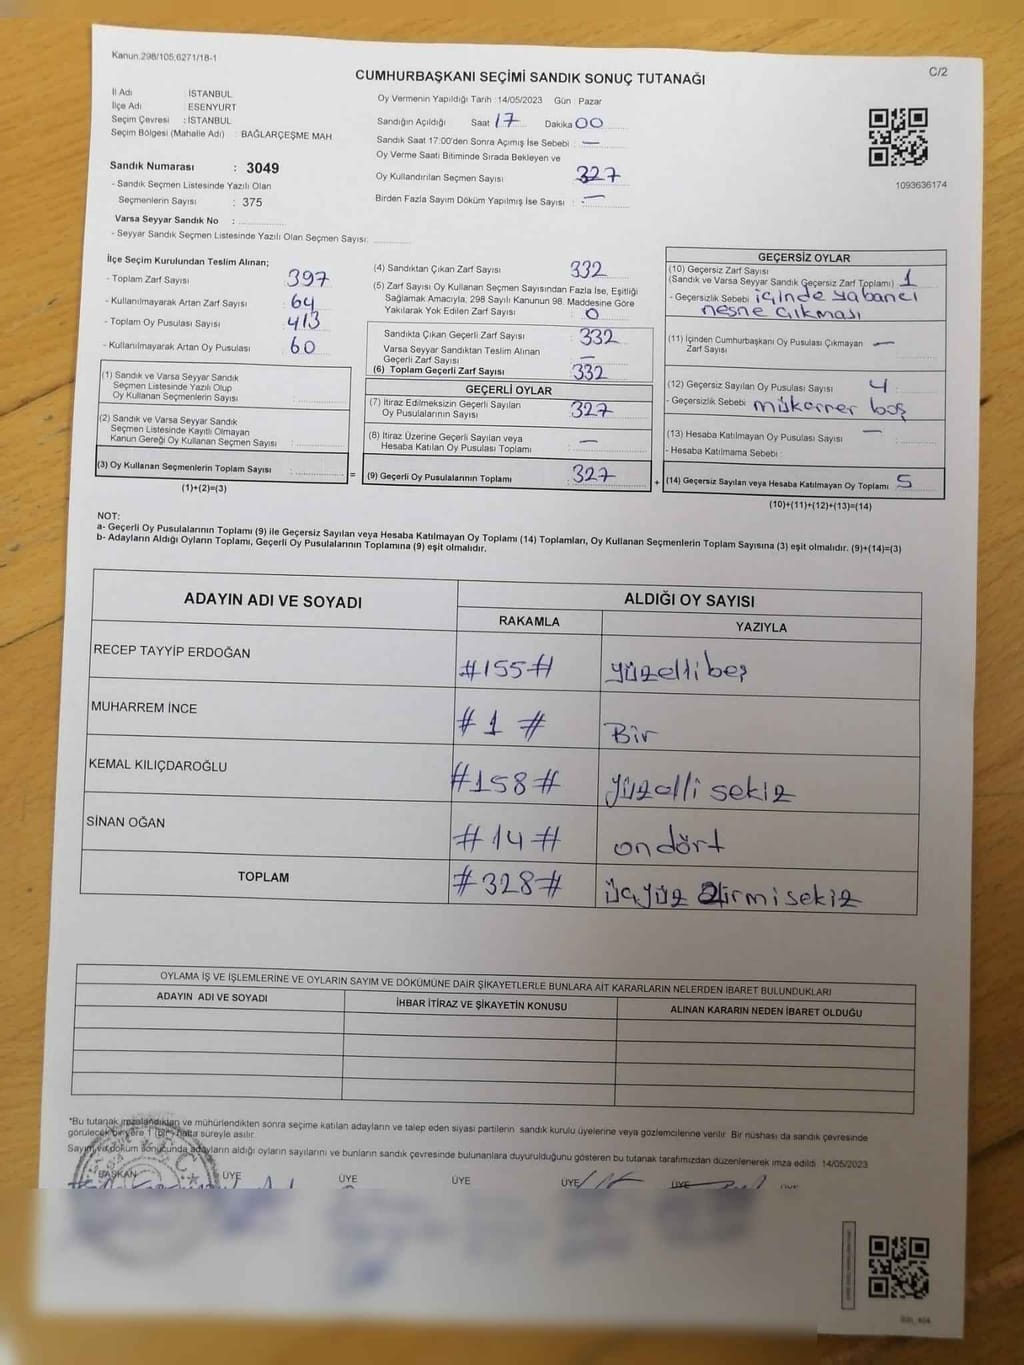 Kanun.298/105,6271/18-1
C/2
CUMHURBAŞKANI SEÇİMİ SANDIK SONUÇ TUTANAĞI
İl Adı : İSTANBUL
İlçe Adı : ESENYURT
Seçim Çevresi : İSTANBUL
Seçim Bölgesi (Mahalle Adı) : BAĞLARÇEŞME MAH.
Sandık Numarası : 3049
- Sandık Seçmen Listesinde Yazılı Olan
Seçmenlerin Sayısı : 375
Varsa Seyyar Sandık No :
- Seyyar Sandık Seçmen Listesinde Yazılı Olan Seçmen Sayısı:
Oy Vermenin Yapıldığı Tarih :14/05/2023 Gün : Pazar
Sandığın Açıldığı Saat 17 Dakika 00
Sandık Saat 17:00'den Sonra Açımış İse Sebebi : —
Oy Verme Saati Bitiminde Sırada Bekleyen ve
Oy Kullandırılan Seçmen Sayısı 327
Birden Fazla Sayım Döküm Yapılmış İse Sayısı : —
1093636174
İlçe Seçim Kurulundan Teslim Alınan;
- Toplam Zarf Sayısı 397
- Kullanılmayarak Artan Zarf Sayısı 64
- Toplam Oy Pusulası Sayısı 413
- Kullanılmayarak Artan Oy Pusulası 60
(1) Sandık ve Varsa Seyyar Sandık
Seçmen Listesinde Yazılı Olup
Oy Kullanan Seçmenlerin Sayısı :
(2) Sandık ve Varsa Seyyar Sandık
Seçmen Listesinde Kayıtlı Olmayan
Kanun Gereği Oy Kullanan Seçmen Sayısı :
(3) Oy Kullanan Seçmenlerin Toplam Sayısı :
(1)+(2)=(3)
(4) Sandıktan Çıkan Zarf Sayısı 332
(5) Zarf Sayısı Oy Kullanan Seçmen Sayısından Fazla İse, Eşitliği
Sağlamak Amacıyla, 298 Sayılı Kanunun 98. Maddesine Göre
Yakılarak Yok Edilen Zarf Sayısı : 0
Sandıkta Çıkan Geçerli Zarf Sayısı : 332
Varsa Seyyar Sandıktan Teslim Alınan
Geçerli Zarf Sayısı : —
(6) Toplam Geçerli Zarf Sayısı : 332
=
GEÇERLİ OYLAR
(7) İtiraz Edilmeksizin Geçerli Sayılan
Oy Pusulalarının Sayısı : 327
(8) İtiraz Üzerine Geçerli Sayılan veya
Hesaba Katılan Oy Pusulası Toplamı : —
(9) Geçerli Oy Pusulalarının Toplamı : 327
+
GEÇERSİZ OYLAR
(10) Geçersiz Zarf Sayısı
(Sandık ve Varsa Seyyar Sandık Geçersiz Zarf Toplamı) : 1
- Geçersizlik Sebebi : içinde yabancı
nesne çıkması
(11) İçinden Cumhurbaşkanı Oy Pusulası Çıkmayan
Zarf Sayısı : —
(12) Geçersiz Sayılan Oy Pusulası Sayısı : 4
- Geçersizlik Sebebi mükerrer boş
(13) Hesaba Katılmayan Oy Pusulası Sayısı : —
- Hesaba Katılmama Sebebi :
(14) Geçersiz Sayılan veya Hesaba Katılmayan Oy Toplamı : 5
(10)+(11)+(12)+(13)=(14)
NOT:
a- Geçerli Oy Pusulalarının Toplamı (9) ile Geçersiz Sayılan veya Hesaba Katılmayan Oy Toplamı (14) Toplamları, Oy Kullanan Seçmenlerin Toplam Sayısına (3) eşit olmalıdır. (9)+(14)=(3)
b- Adayların Aldığı Oyların Toplamı, Geçerli Oy Pusulalarının Toplamına (9) eşit olmalıdır.
ADAYIN ADI VE SOYADI
ALDIĞI OY SAYISI
RAKAMLA YAZIYLA
RECEP TAYYİP ERDOĞAN #155# yüzellibeş
MUHARREM İNCE #1# Bir
KEMAL KILIÇDAROĞLU #158# yüzelli sekiz
SİNAN OĞAN #14# ondört
TOPLAM #328# üçyüz yirmisekiz
OYLAMA İŞ VE İŞLEMLERİNE VE OYLARIN SAYIM VE DÖKÜMÜNE DAİR ŞİKAYETLERLE BUNLARA AİT KARARLARIN NELERDEN İBARET BULUNDUKLARI
ADAYIN ADI VE SOYADI İHBAR İTİRAZ VE ŞİKAYETİN KONUSU ALINAN KARARIN NEDEN İBARET OLDUĞU
*Bu tutanak imzalandıktan ve mühürlendikten sonra seçime katılan adayların ve talep eden siyasi partilerin sandık kurulu üyelerine veya gözlemcilerine verilir. Bir nüshası da sandık çevresinde
görülecek bir yere 1 (Bir) hafta süreyle asılır.
Sayım ve döküm sonucunda adayların aldığı oyların sayılarını ve bunların sandık çevresinde bulunanlara duyurulduğunu gösteren bu tutanak tarafımızdan düzenlenerek imza edildi. 14/05/2023
BAŞKAN ÜYE ÜYE ÜYE ÜYE ÜYE ÜYE